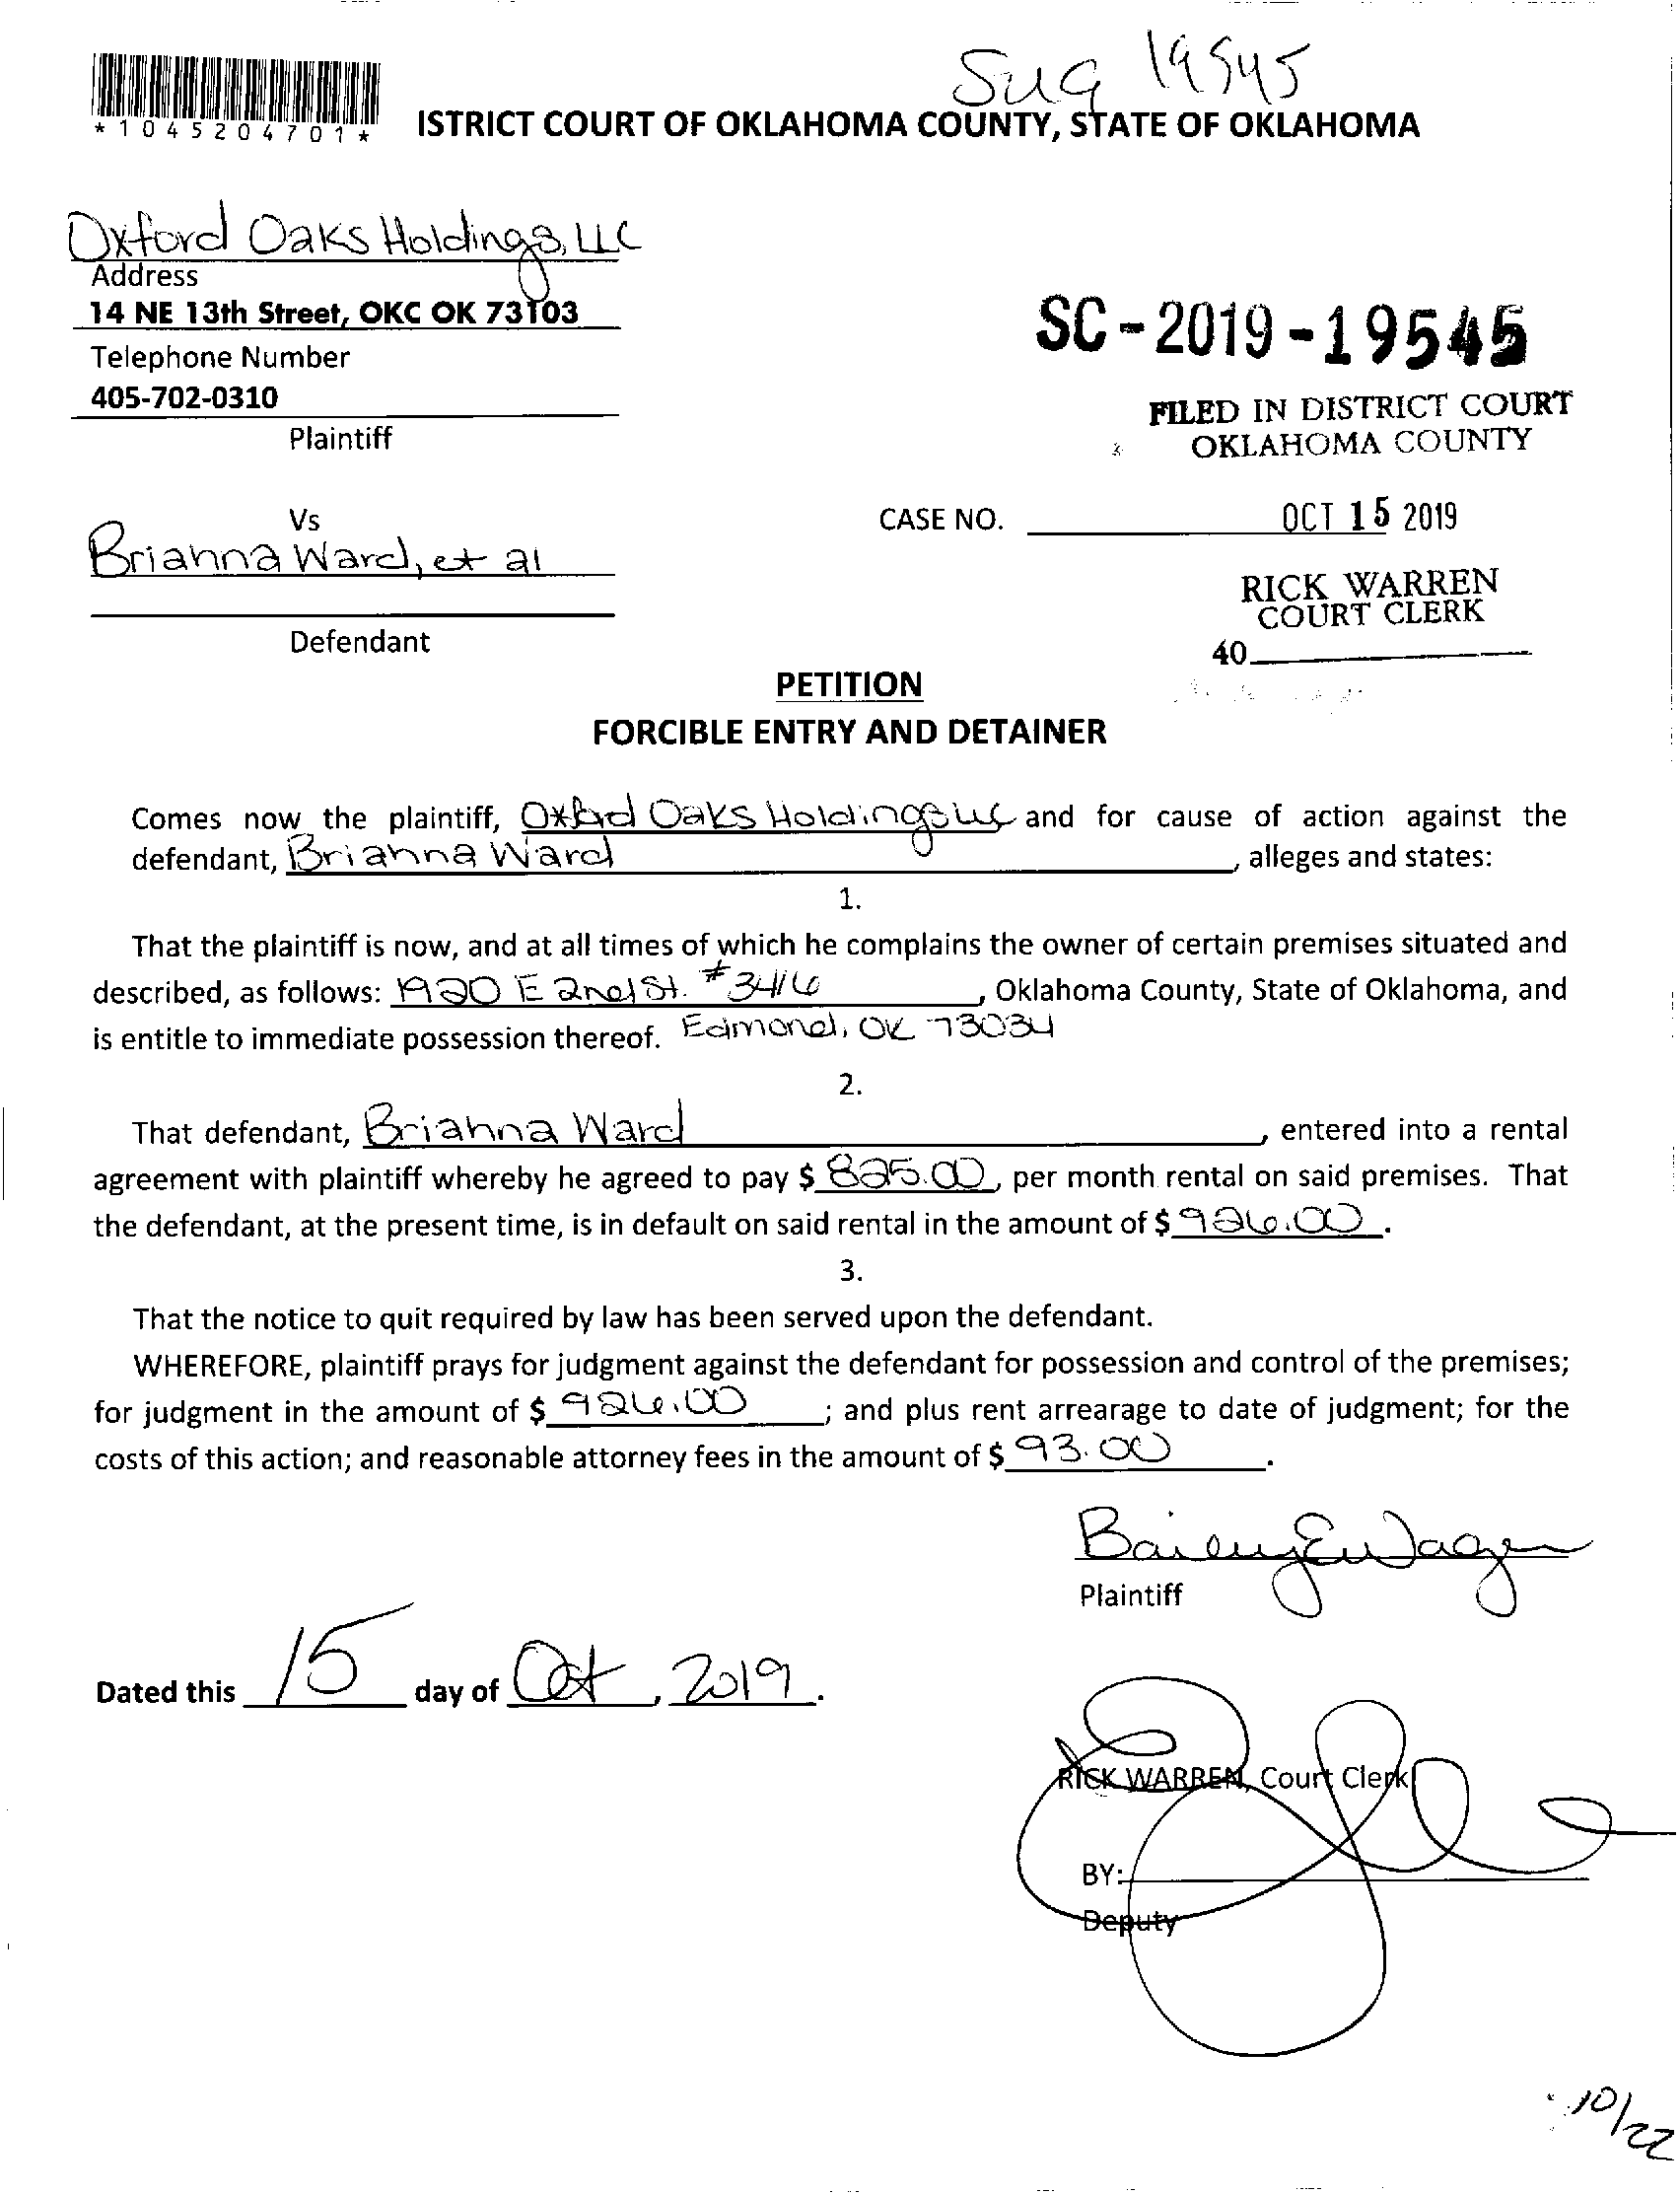 Sug 19545
*1045204701*
ISTRICT COURT OF OKLAHOMA COUNTY, STATE OF OKLAHOMA
Oxford Oaks Holdings, LLC
Address
14 NE 13th Street, OKC OK 73103
Telephone Number
405-702-0310
Plaintiff
SC-2019-19545
FILED IN DISTRICT COURT
OKLAHOMA COUNTY
Vs
CASE NO.
OCT 15 2019
Brianna Ward, et al
RICK WARREN
COURT CLERK
Defendant
40
PETITION
FORCIBLE ENTRY AND DETAINER
Comes now the plaintiff, Oxford Oaks Holdings LLC and for cause of action against the
defendant, Brianna Ward, alleges and states:
1.
That the plaintiff is now, and at all times of which he complains the owner of certain premises situated and
described, as follows: 1920 E 2nd St. #3416, Oklahoma County, State of Oklahoma, and
is entitle to immediate possession thereof. Edmond, OK 73034
2.
That defendant, Brianna Ward, entered into a rental
agreement with plaintiff whereby he agreed to pay $ 825.00, per month rental on said premises. That
the defendant, at the present time, is in default on said rental in the amount of $ 926.00.
3.
That the notice to quit required by law has been served upon the defendant.
WHEREFORE, plaintiff prays for judgment against the defendant for possession and control of the premises;
for judgment in the amount of $ 926.00; and plus rent arrearage to date of judgment; for the
costs of this action; and reasonable attorney fees in the amount of $ 93.00.
Plaintiff
Dated this 15 day of Oct, 2019.
RICK WARREN, Court Clerk
BY:
Deputy
10/22